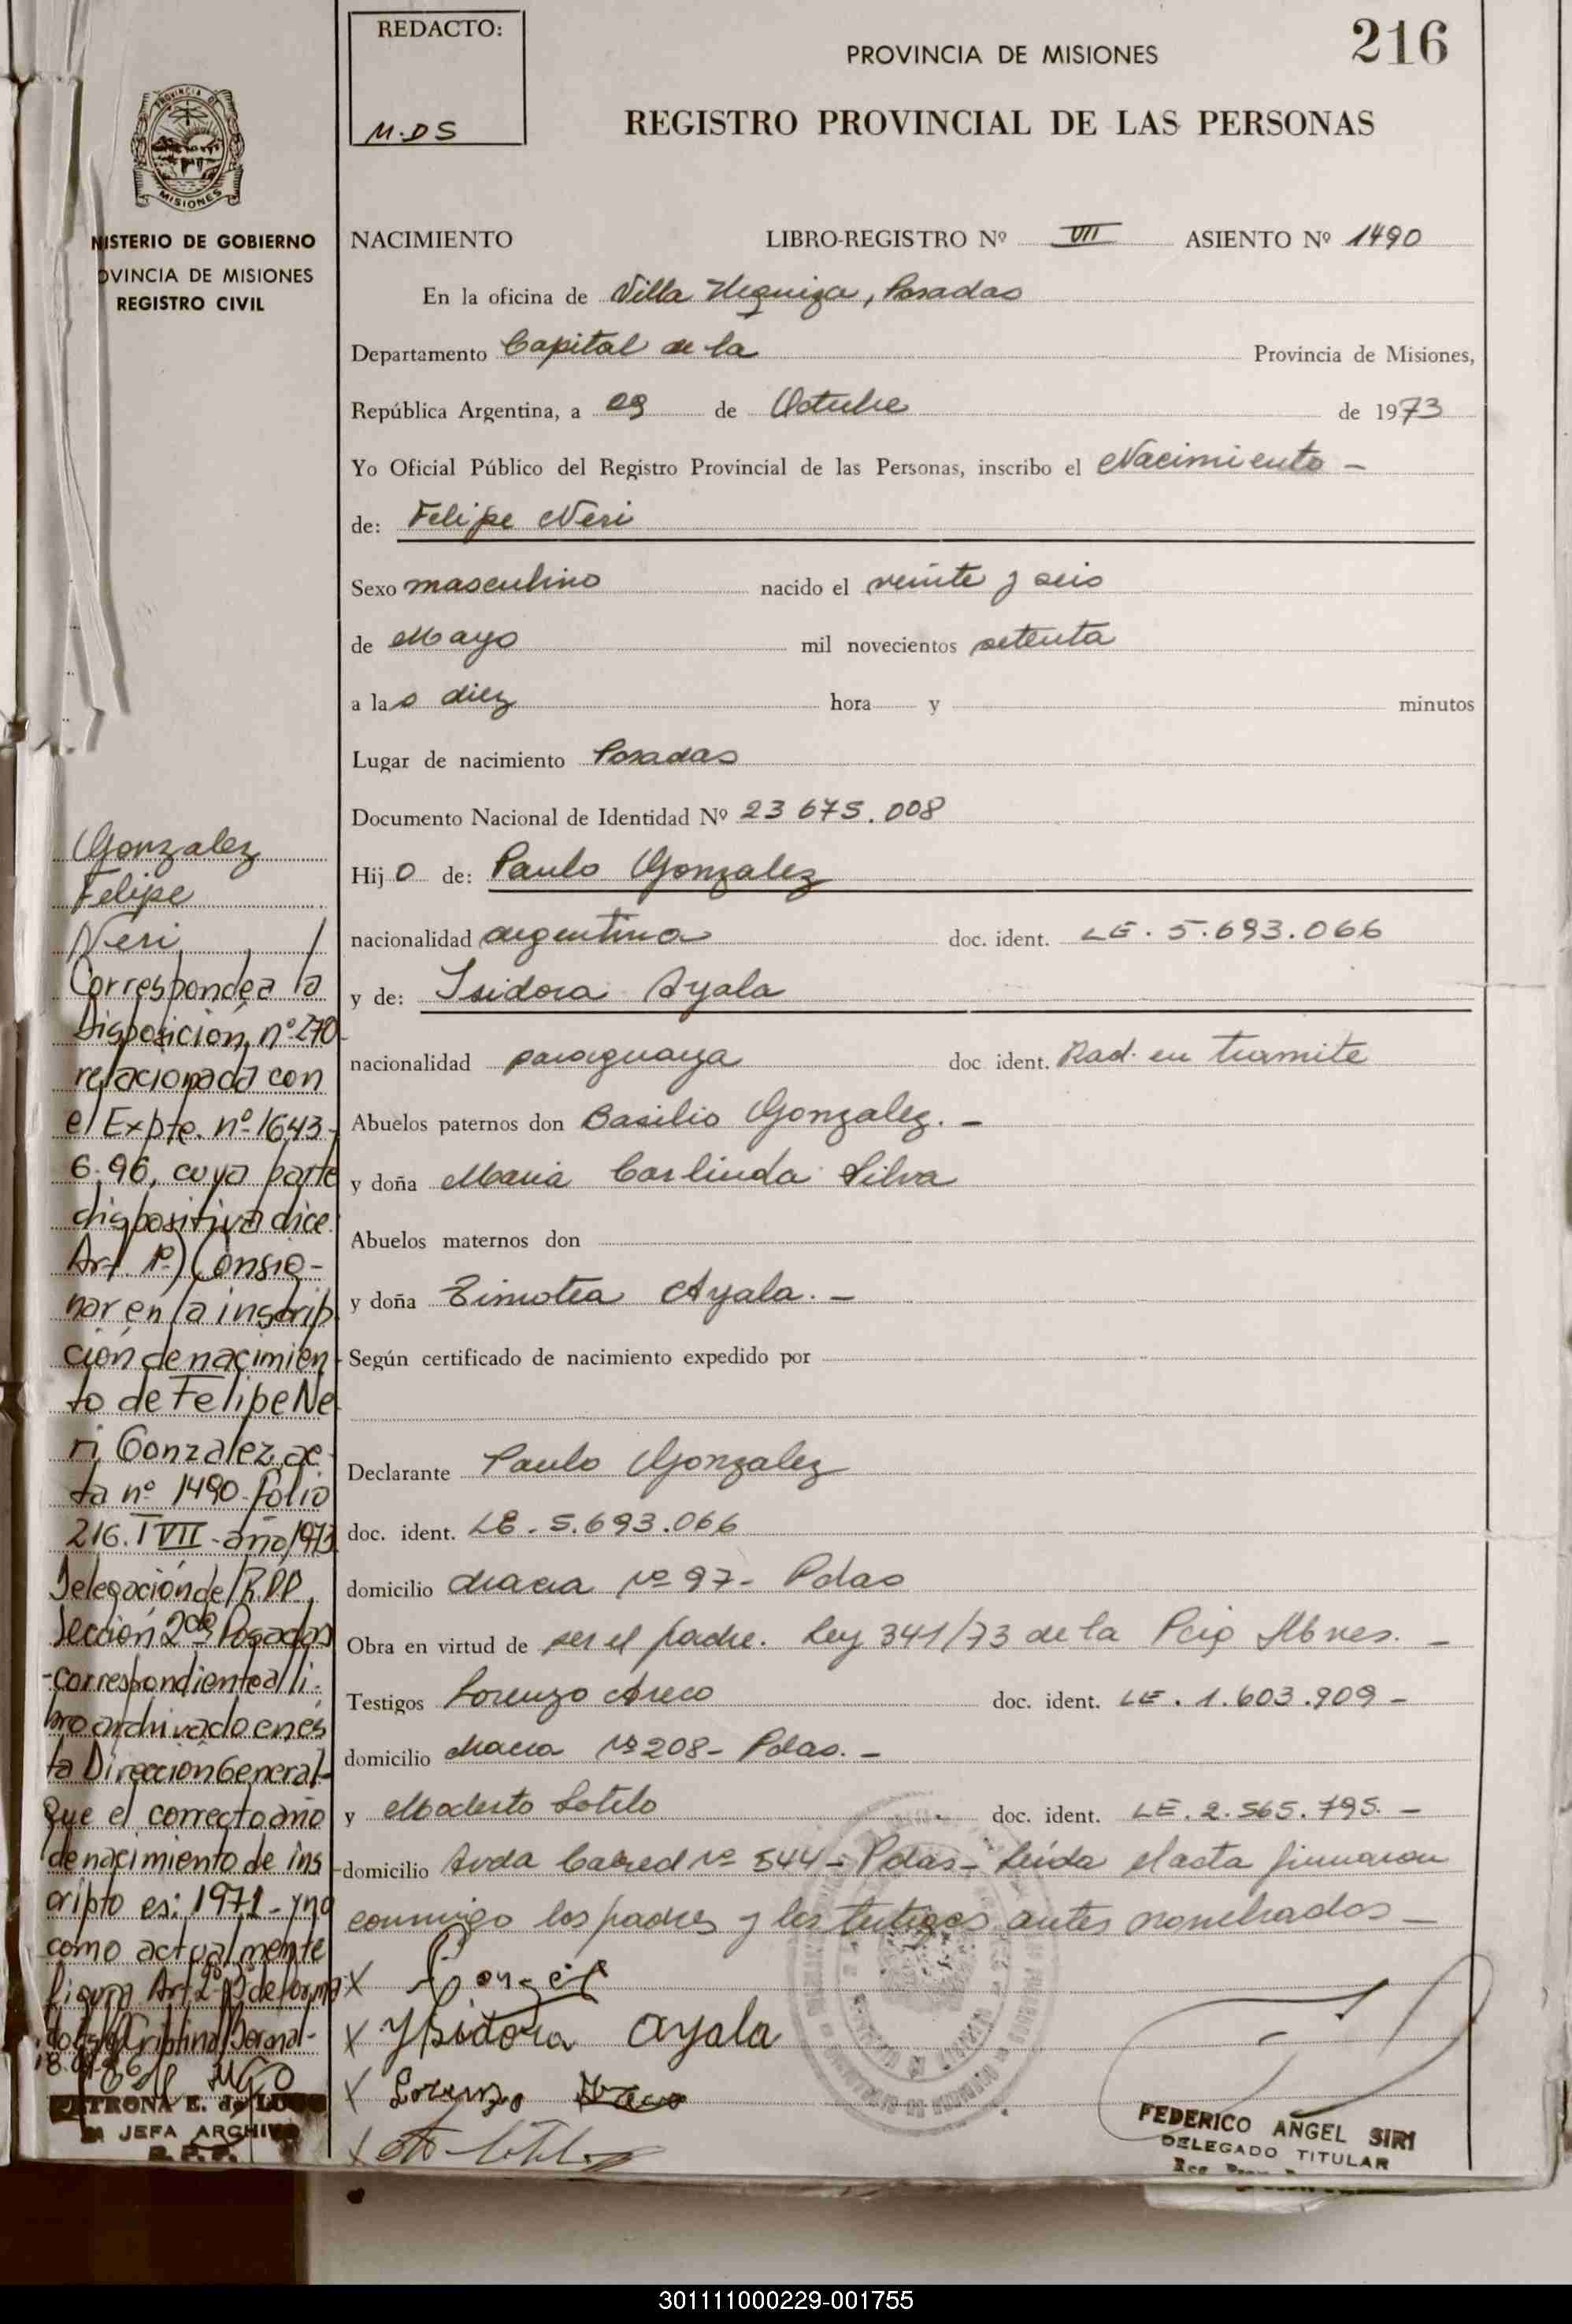 REDACTO:
M.DS
PROVINCIA DE MISIONES
216
REGISTRO PROVINCIAL DE LAS PERSONAS
PROVINCIA DE
MISIONES
NISTERIO DE GOBIERNO
OVINCIA DE MISIONES
REGISTRO CIVIL
NACIMIENTO LIBRO-REGISTRO Nº VII ASIENTO Nº 1490
En la oficina de Villa Urquiza, Posadas
Departamento Capital de la Provincia de Misiones,
República Argentina, a 09 de Octubre de 1973
Yo Oficial Público del Registro Provincial de las Personas, inscribo el Nacimiento -
de: Felipe Neri
Sexo masculino nacido el veinte y seis
de Mayo mil novecientos setenta
a las diez hora y minutos
Lugar de nacimiento Posadas
Documento Nacional de Identidad Nº 23 675.008
Hijo de: Paulo Gonzalez
nacionalidad argentina doc. ident. LE. 5.693.066
y de: Isidora Ayala
nacionalidad paraguaya doc ident. Rad. en tramite
Abuelos paternos don Basilio Gonzalez. -
y doña Maria Carlinda Silva
Abuelos maternos don
y doña Timotea Ayala. -
Según certificado de nacimiento expedido por
Declarante Paulo Gonzalez
doc. ident. LE. 5.693.066
domicilio chacra Nº 97- Pdas
Obra en virtud de ser el padre. Ley 341/73 de la Pcia Mnes. -
Testigos Lorenzo Areco doc. ident. LE. 1.603.909 -
domicilio chacra Nº 208- Pdas. -
y Modesto Sotelo doc. ident. LE. 2.565.795. -
domicilio Avda Cabred Nº 544 - Pdas - Leída el acta firmaron
conmigo los padres y los testigos antes nombrados -
X
X Ysidora ayala
X Lorenzo Areco
X
FEDERICO ANGEL SIRI
DELEGADO TITULAR
Gonzalez
Felipe
Neri /
Corresponde a la
Disposición nº 270
relacionada con
el Expte. nº 1643-
6.96, cuya parte
dispositiva dice
Art. 1º) Consig-
nar en la inscrip
ción de nacimien-
to de Felipe Ne
ri Gonzalez, ac
ta nº 1490-folio
216. T VII-año 1973
Delegación de/R.P.P.
Sección 2da Posadas
-correspondiente al li-
bro archivado en és
ta Dirección General-
Que el correcto año
de nacimiento de ins
cripto es: 1971-y no
como actualmente
figura Art 2º-3º de forma
Cristina
PETRONA E. de LUGO
JEFA ARCHIVO
R.P.P.
301111000229-001755